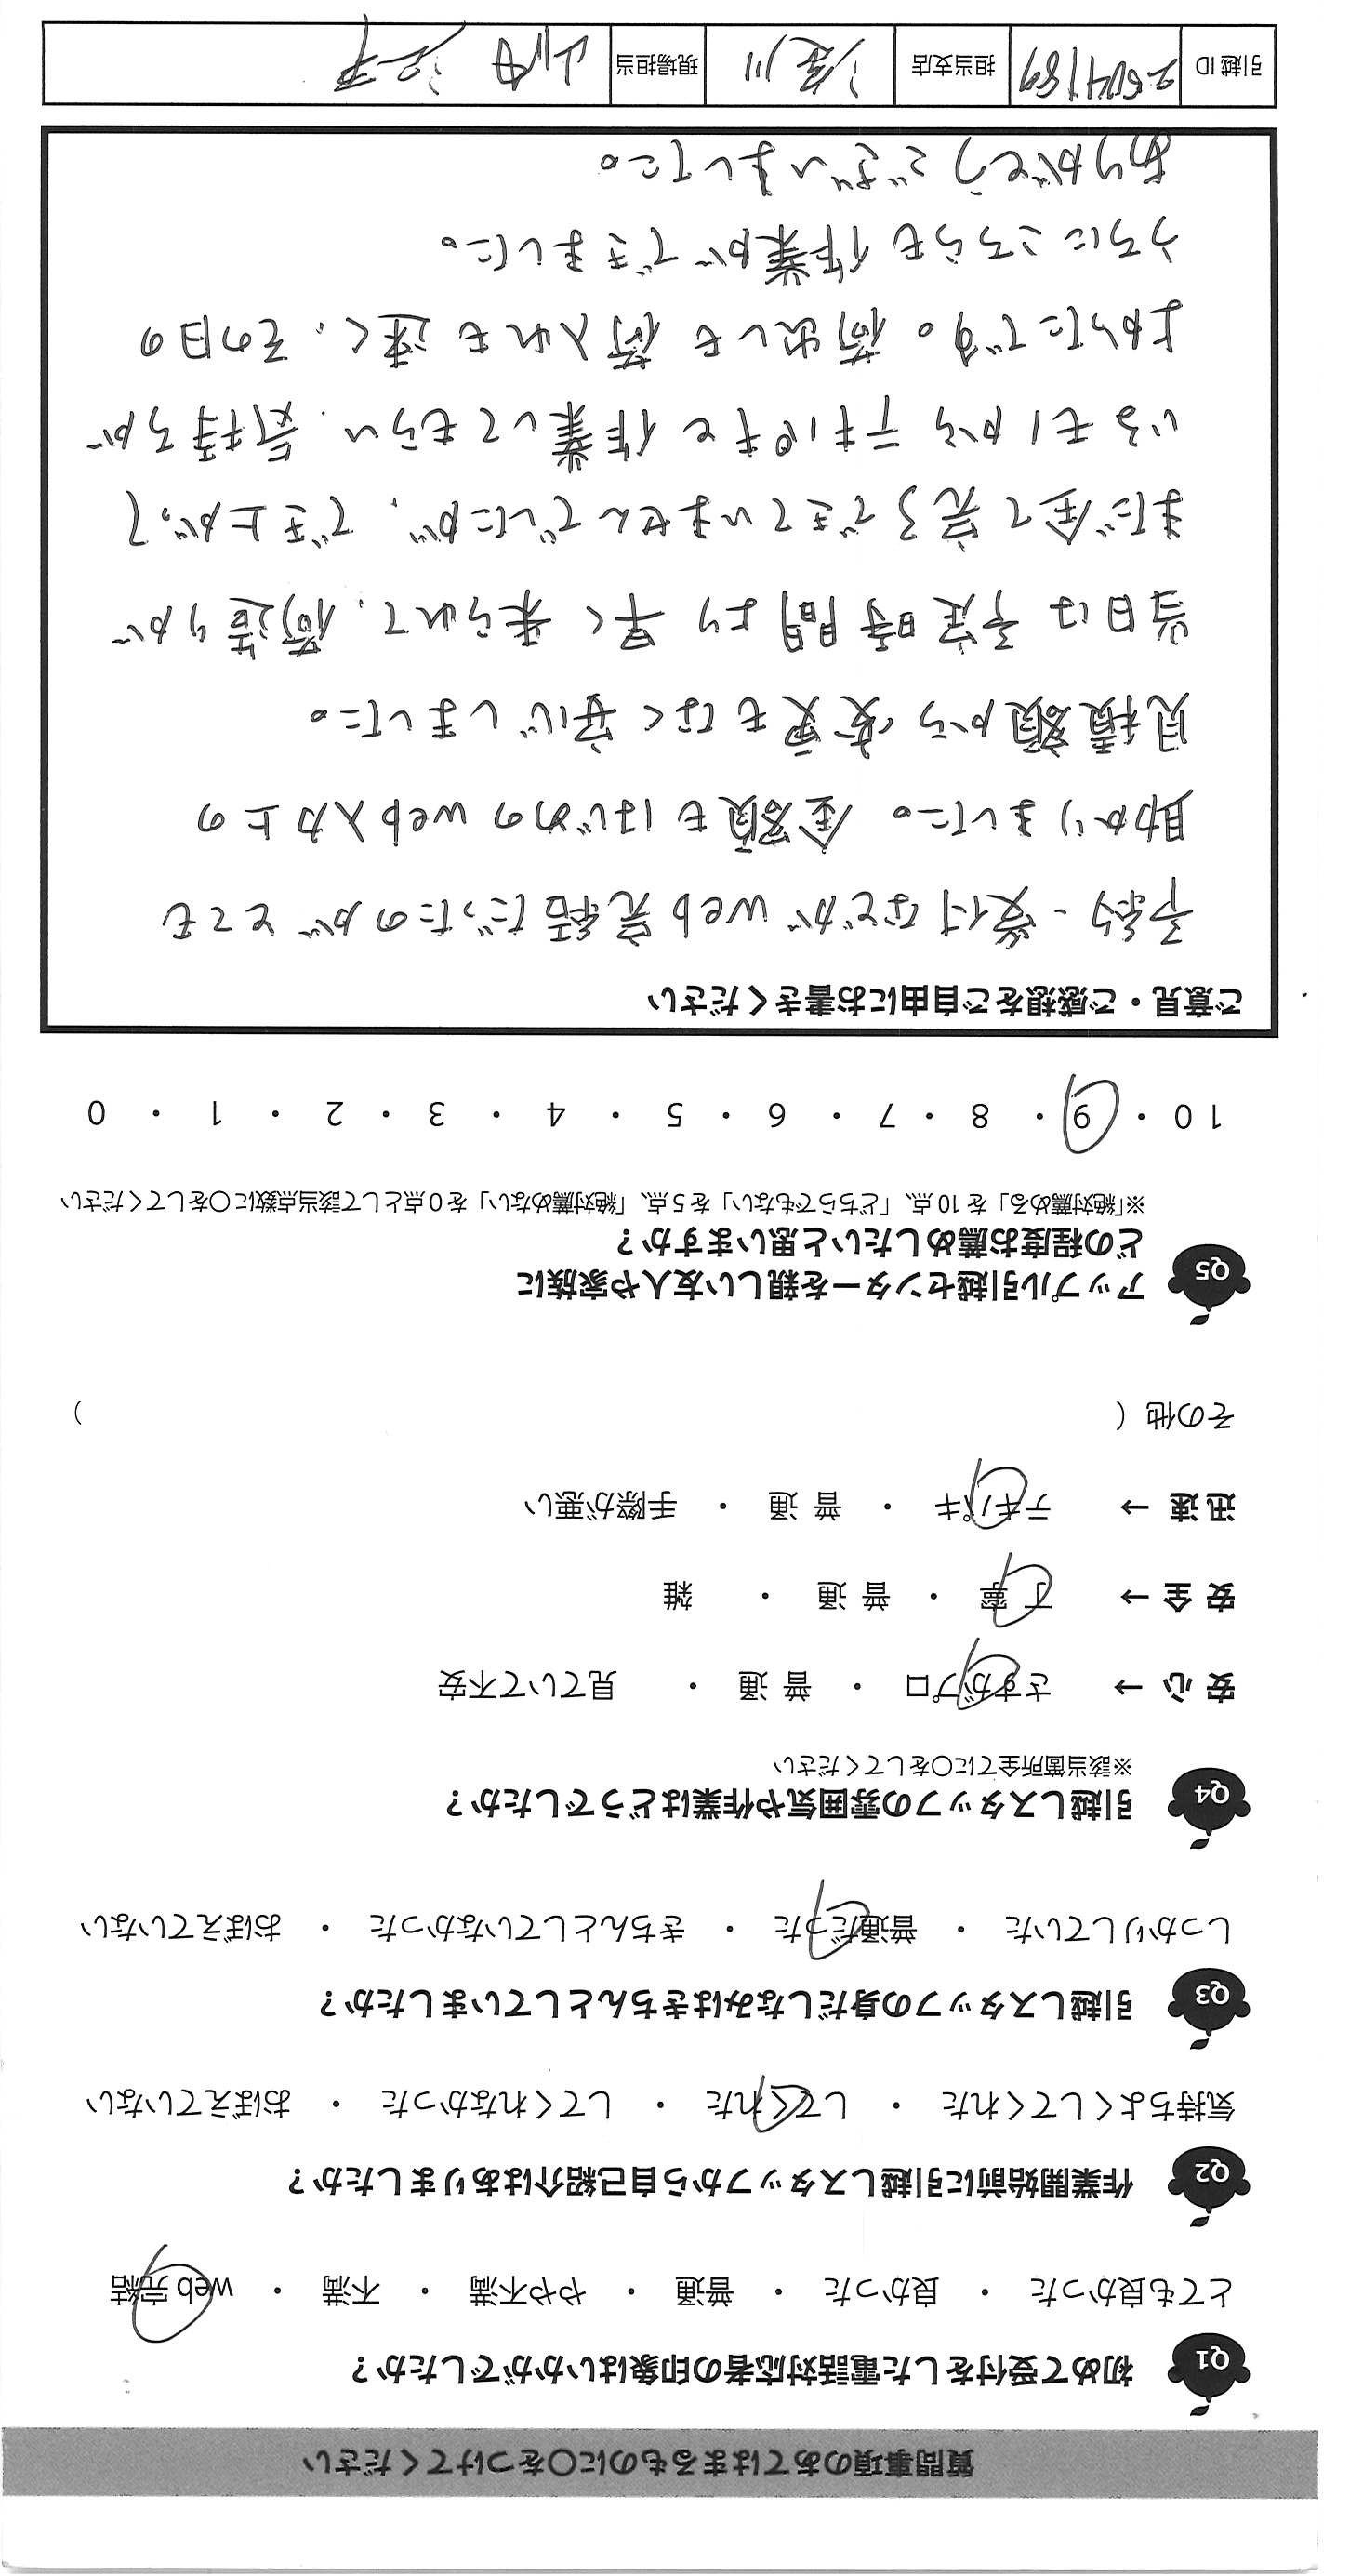 質問事項のあてはまるものに○をつけてください
Q1 初めて受付をした電話対応者の印象はいかがでしたか？
とても良かった ・ 良かった ・ 普通 ・ やや不満 ・ 不満 ・ web 完結
Q2 作業開始前に引越しスタッフから自己紹介はありましたか？
気持ちよくしてくれた ・ してくれた ・ してくれなかった ・ おぼえていない
Q3 引越しスタッフの身だしなみはきちんとしていましたか？
しっかりしていた ・ 普通だった ・ きちんとしていなかった ・ おぼえていない
Q4 引越しスタッフの雰囲気や作業はどうでしたか？
※該当箇所全てに○をしてください
安 心 → さすがプロ ・ 普 通 ・ 見ていて不安
安 全 → 丁 寧 ・ 普 通 ・ 雑
迅 速 → テキパキ ・ 普 通 ・ 手際が悪い
その他（ ）
Q5 アップル引越センターを親しい友人や家族に
どの程度お薦めしたいと思いますか？
※「絶対薦める」を 10 点、「どちらでもない」を 5 点、「絶対薦めない」を 0 点として該当点数に○をしてください
10 ・ 9 ・ 8 ・ 7 ・ 6 ・ 5 ・ 4 ・ 3 ・ 2 ・ 1 ・ 0
ご意見・ご感想をご自由にお書きください
予約・受付などがweb完結だったのがとても
助かりました。金額もはじめのweb入力上の
見積額から変更もなく安心しました。
当日は予定時間より早く来られて、荷造りが
まだ全て完了できていませんでしたが、でき上がって
いるモノからテキパキと作業してもらい、気持ちが
よかったです。荷出しも荷入れも速く、その日の
うちにこちらも作業ができました。
ありがとうございました。
引越 ID 2504189 担当支店 淀川 現場担当 山内